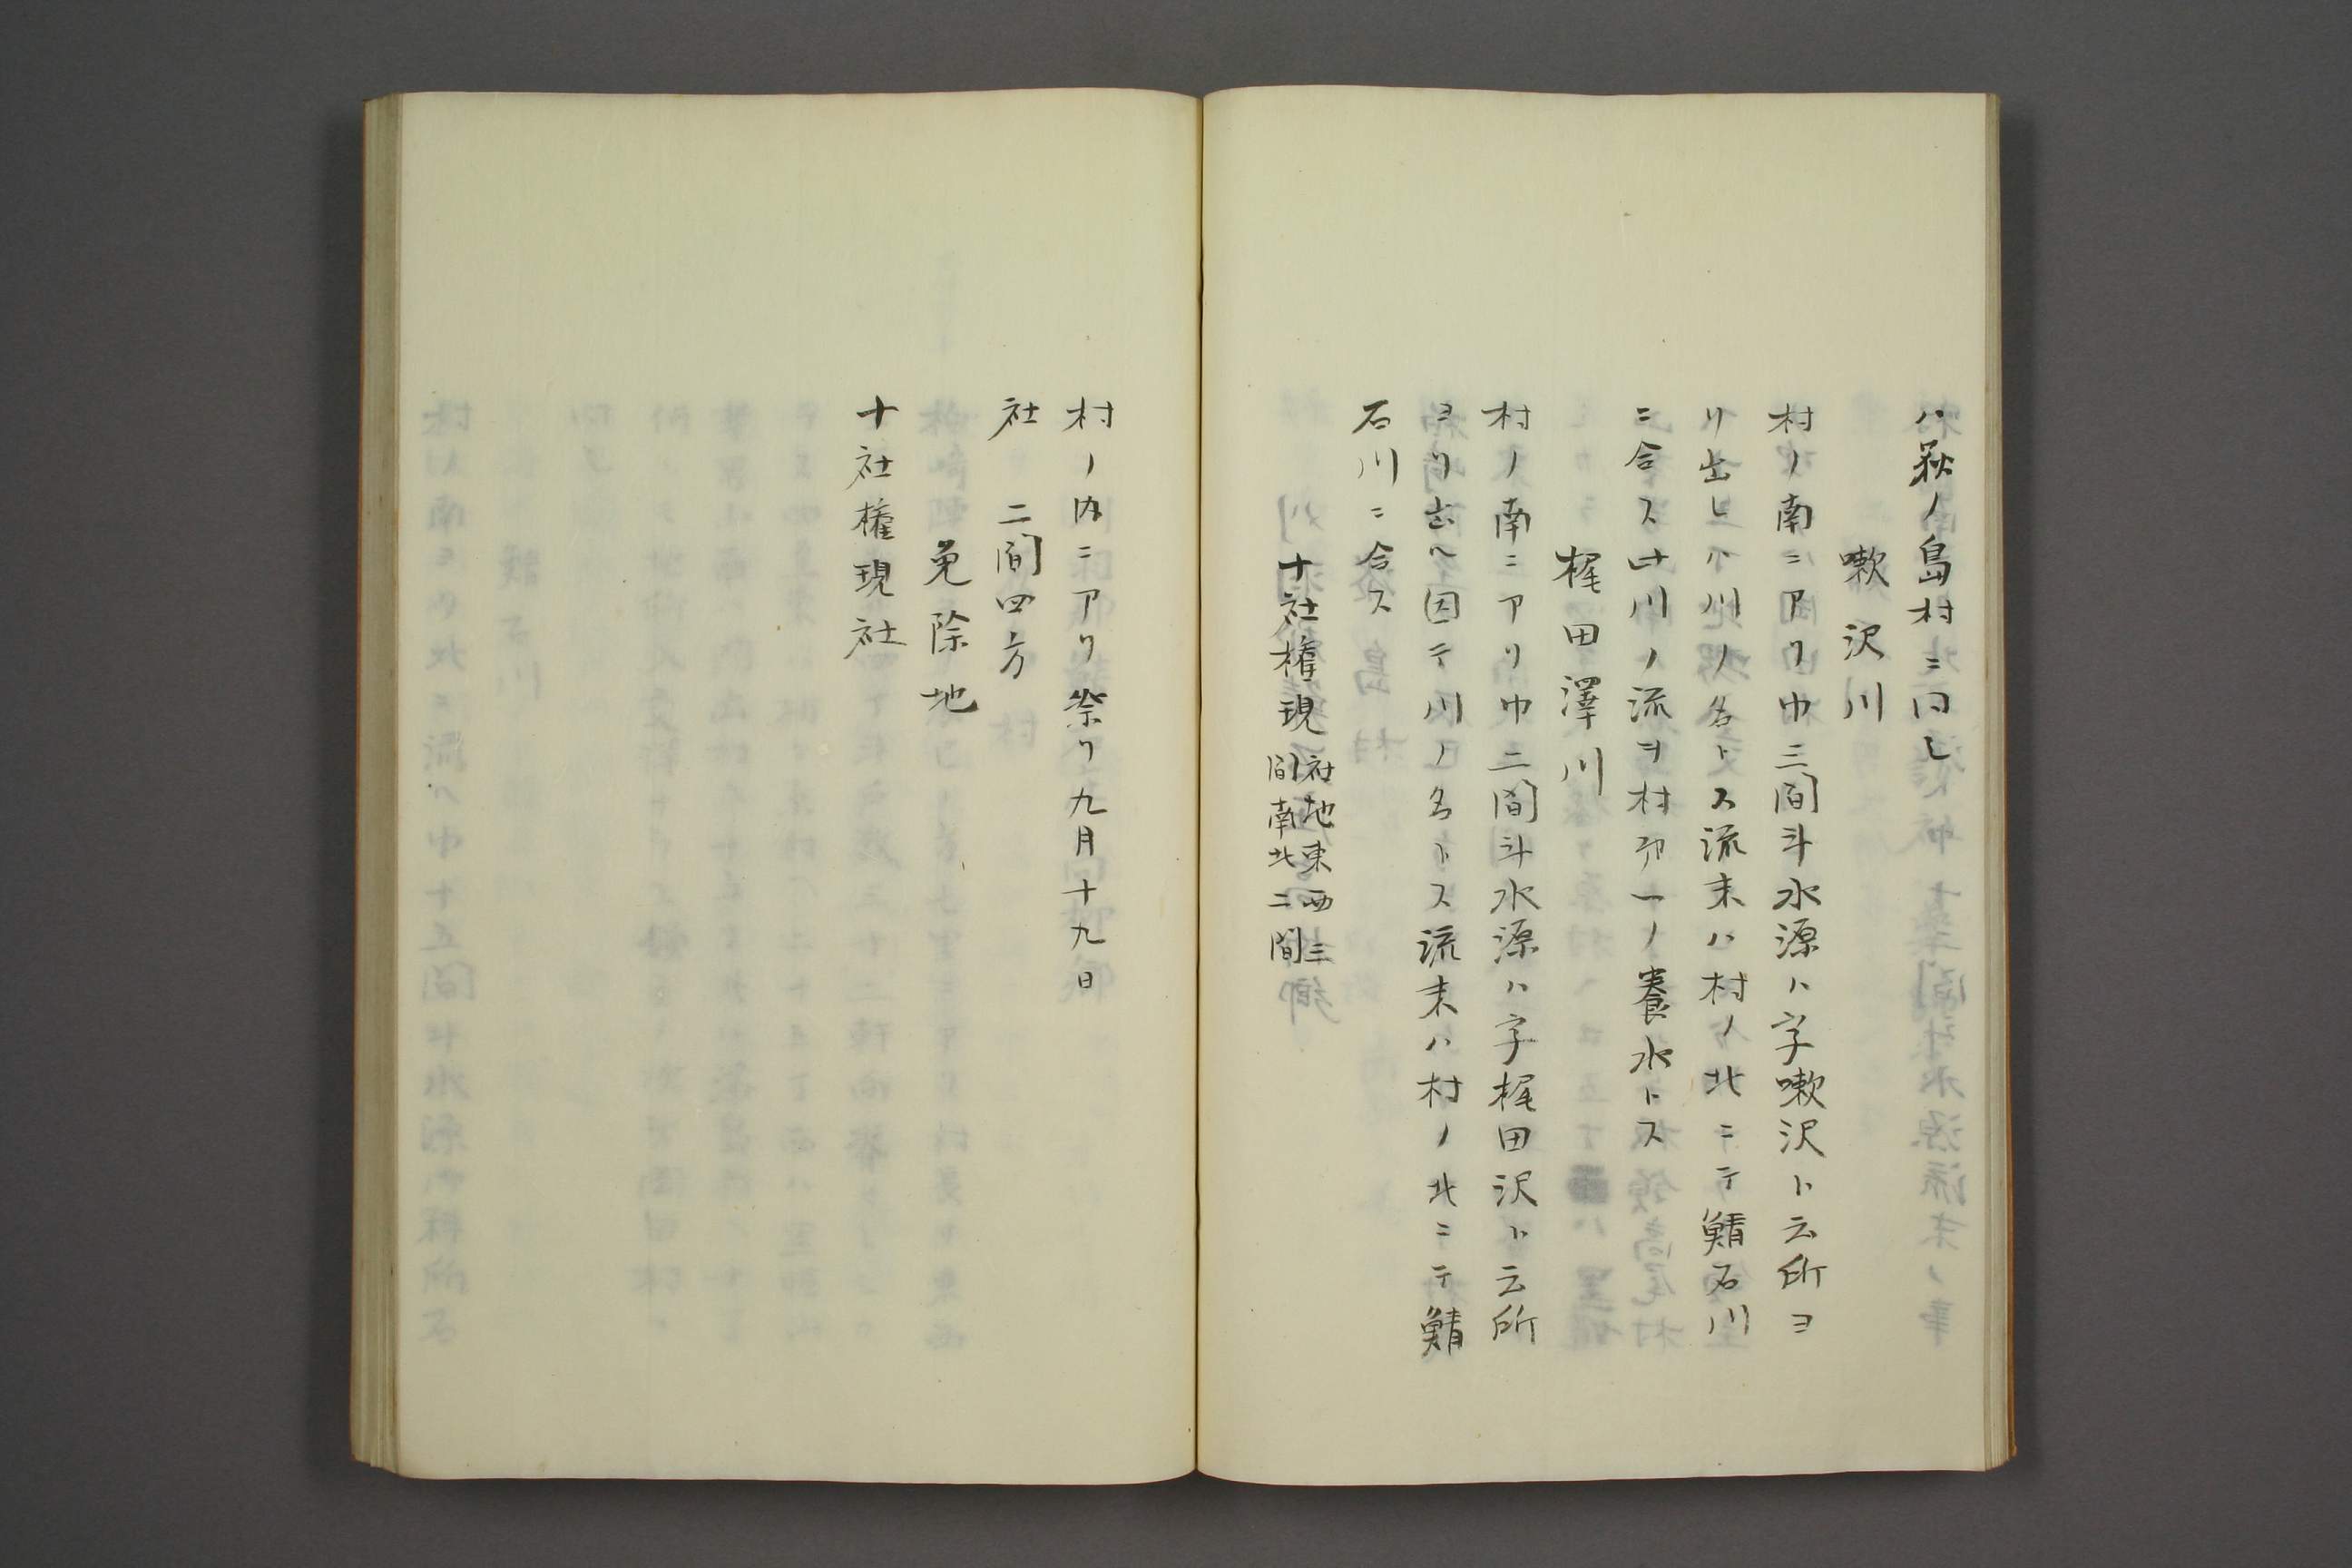 ハ萩ノ島村ニ同シ
嗽沢川
村ノ南ニアリ巾三間斗水源ハ字嗽沢ト云所ヨ
リ出レハ川ノ名トス流末ハ村ノ北ニテ鯖石川
ニ合ス此川ノ流ヲ村中一ノ養水トス
梶田澤川
村ノ南ニアリ巾二間斗水源ハ字梶田沢ト云所
ヨリ出ヘ因テ川ノ名トス流末ハ村ノ北ニテ鯖
石川ニ合ス
十社権現 社地東西三
間南北二間
村ノ内ニアリ祭リ九月十九日
社 二間四方
免除地
十社権現社